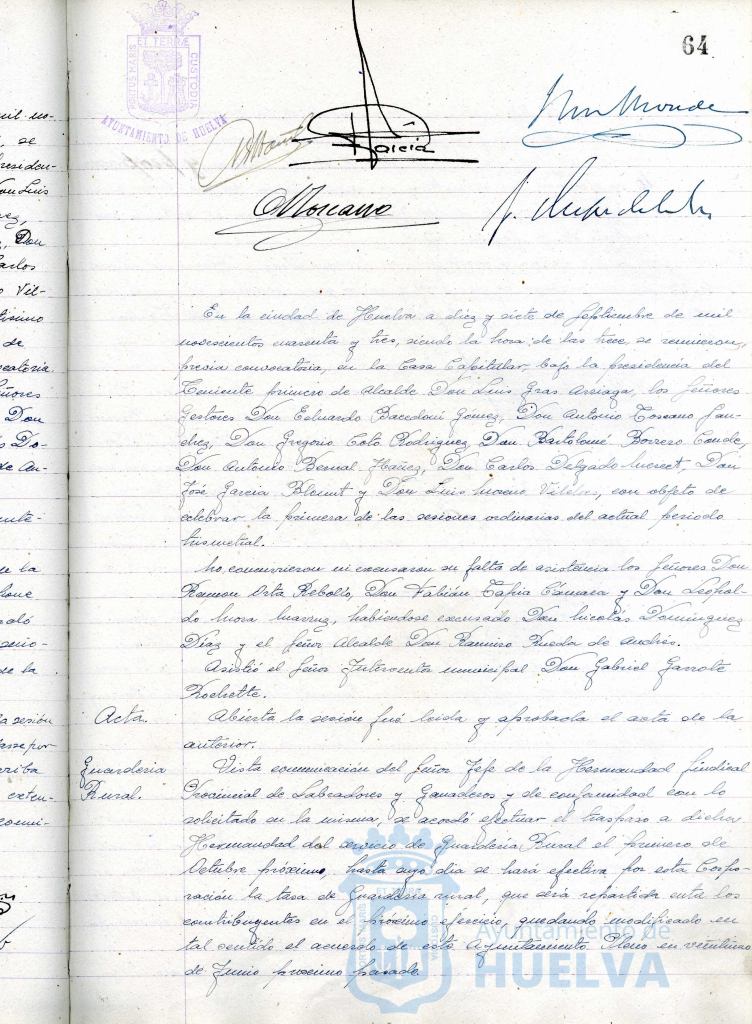 64
PORTUS MARIS ET TERRAE CUSTODIA
AYUNTAMIENTO DE HUELVA
García
Toscano
En la ciudad de Huelva a diez y siete de Septiembre de mil
novecientos cuarenta y tres, siendo la hora de las trece, se reunieron,
previa convocatoria, en la Casa Capitular, bajo la presidencia del
Teniente primero de Alcalde Don Luis Gras Arriaga, los Señores
Gestores Don Eduardo Bacedoni Gómez, Don Antonio Toscano San-
chez, Don Gregorio Coto Rodriguez, Don Bartolomé Borrero Conde,
Don Antonio Bernal Ibañez, Don Carlos Delgado Don
José Garcia Blount y Don Luis Moreno con objeto de
celebrar la primera de las sesiones ordinarias del actual periodo
trimestral.
No concurrieron ni excusaron su falta de asistencia los Señores Don
Ramon Orta Rebollo, Don Fabián Tapia Cámara y Don Leopol-
do Mora habiendose excusado Don Nicolás Dominguez
Diaz y el Señor Alcalde Don Ramiro Rueda de Andrés.
Asistió el Señor Interventor municipal Don Gabriel Garrote
Rochette.
Acta. Abierta la sesión fué leida y aprobada el acta de la
anterior.
Guarderia Rural. Vista comunicación del Señor Jefe de la Hermandad Sindical
Provincial de Labradores y Ganaderos y de conformidad con lo
solicitado en la misma, se acordó efectuar el traspaso a dicha
Hermandad del servicio de Guardería Rural el primero de
Octubre próximo, hasta cuyo dia se hará efectiva por esta Corpo-
ración la tasa de Guarderia rural, que será repartida entre los
contribuyentes en el próximo ejercicio, quedando modificado en
tal sentido el acuerdo de este Ayuntamiento Pleno en veintiuno
de Junio proximo pasado.
Ayuntamiento de
HUELVA